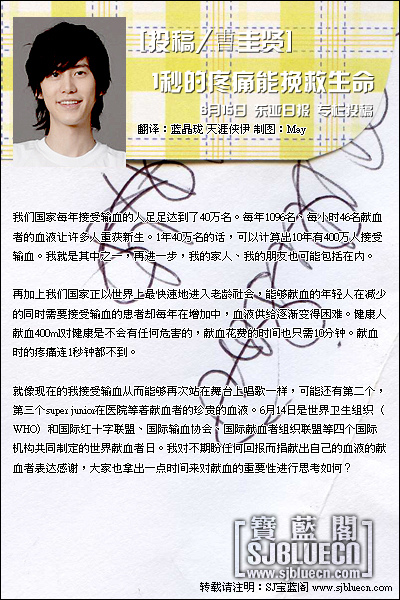 [投稿/曹圭贤]
1秒的疼痛能挽救生命
6月15日 东亚日报 专栏投稿
翻译：蓝晶珑 天涯侠伊 制图：May
我们国家每年接受输血的人足足达到了40万名。每年1096名、每小时46名献血
者的血液让许多人重获新生。1年40万名的话，可以计算出10年有400万人接受
输血。我就是其中之一，再进一步，我的家人、我的朋友也可能包括在内。
再加上我们国家正以世界上最快速地进入老龄社会，能够献血的年轻人在减少
的同时需要接受输血的患者却每年在增加中，血液供给逐渐变得困难。健康人
献血400ml对健康是不会有任何危害的，献血花费的时间也只需10分钟。献血
时的疼痛连1秒钟都不到。
就像现在的我接受输血从而能够再次站在舞台上唱歌一样，可能还有第二个，
第三个super junior在医院等著献血者的珍贵的血液。6月14日是世界卫生组织（
WHO）和国际红十字联盟、国际输血协会、国际献血者组织联盟等四个国际
机构共同制定的世界献血者日。我对不期盼任何回报而捐献出自己的血液的献
血者表达感谢，大家也拿出一点时间来对献血的重要性进行思考如何？
[寶藍閣]
SJBLUECN
www.sjbluecn.com
转载请注明：SJ宝蓝阁 www.sjbluecn.com